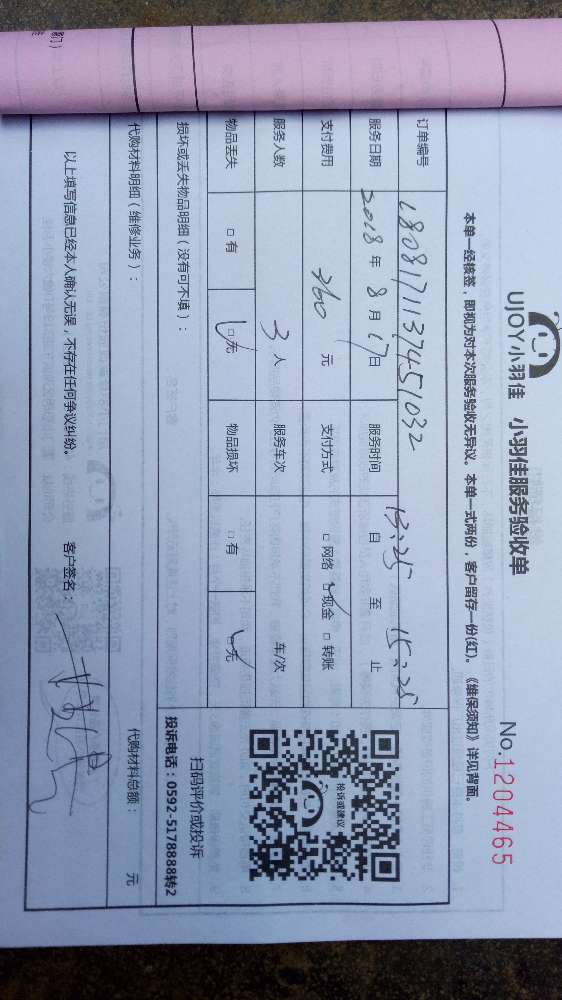 UJOY小羽佳 小羽佳服务验收单
No.1204465
本单一经核签，即视为对本次服务验收无异议。本单一式两份，客户留存一份(红)。《维保须知》详见背面。
订单编号 180817113745 1032
服务日期 2018年8月17日 服务时间 13:25 自 至 15:25 止
支付费用 360 元 支付方式 □ 网络 □ 现金 □ 转账
服务人数 3 人 服务车次 车/次
物品丢失 □ 有 □ 无 物品损坏 □ 有 □ 无
投诉或建议
扫码评价或投诉
投诉电话：0592-5178888转2
损坏或丢失物品明细（没有可不填）：
代购材料明细（维修业务）： 代购材料总额： 元
以上填写信息已经本人确认无误，不存在任何争议纠纷。 客户签名：